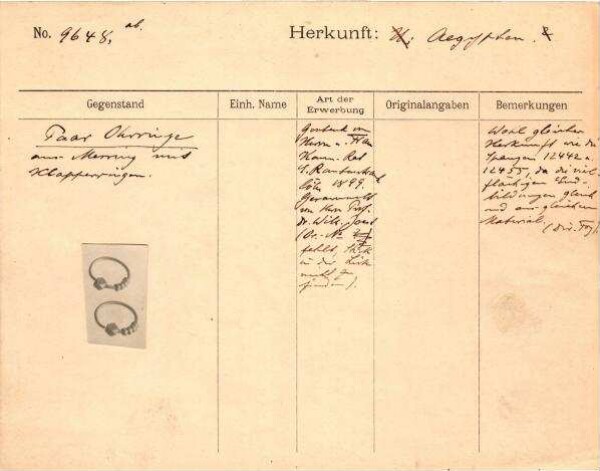 No. 9648, ab.
Herkunft: Aegypten.
Gegenstand
Einh. Name
Art der Erwerbung
Originalangaben
Bemerkungen
Paar Ohrringe
aus Messing mit
Klapperringen.
Geschenk von
Herrn u. Frau
Komm. Rat
E. Rautenstrauch
Cöln 1899.
Gesammelt
von Herr Prof.
Dr. Wilh. Joest
(Or. No
fehlt, Stück
in der Liste
nicht zu
finden).
Wohl gleicher
Herkunft wie die
Spangen 12442 u.
12455, da die viel-
flächigen End-
bildungen gleich
und aus gleichem
Material.
(Dir. Foy)